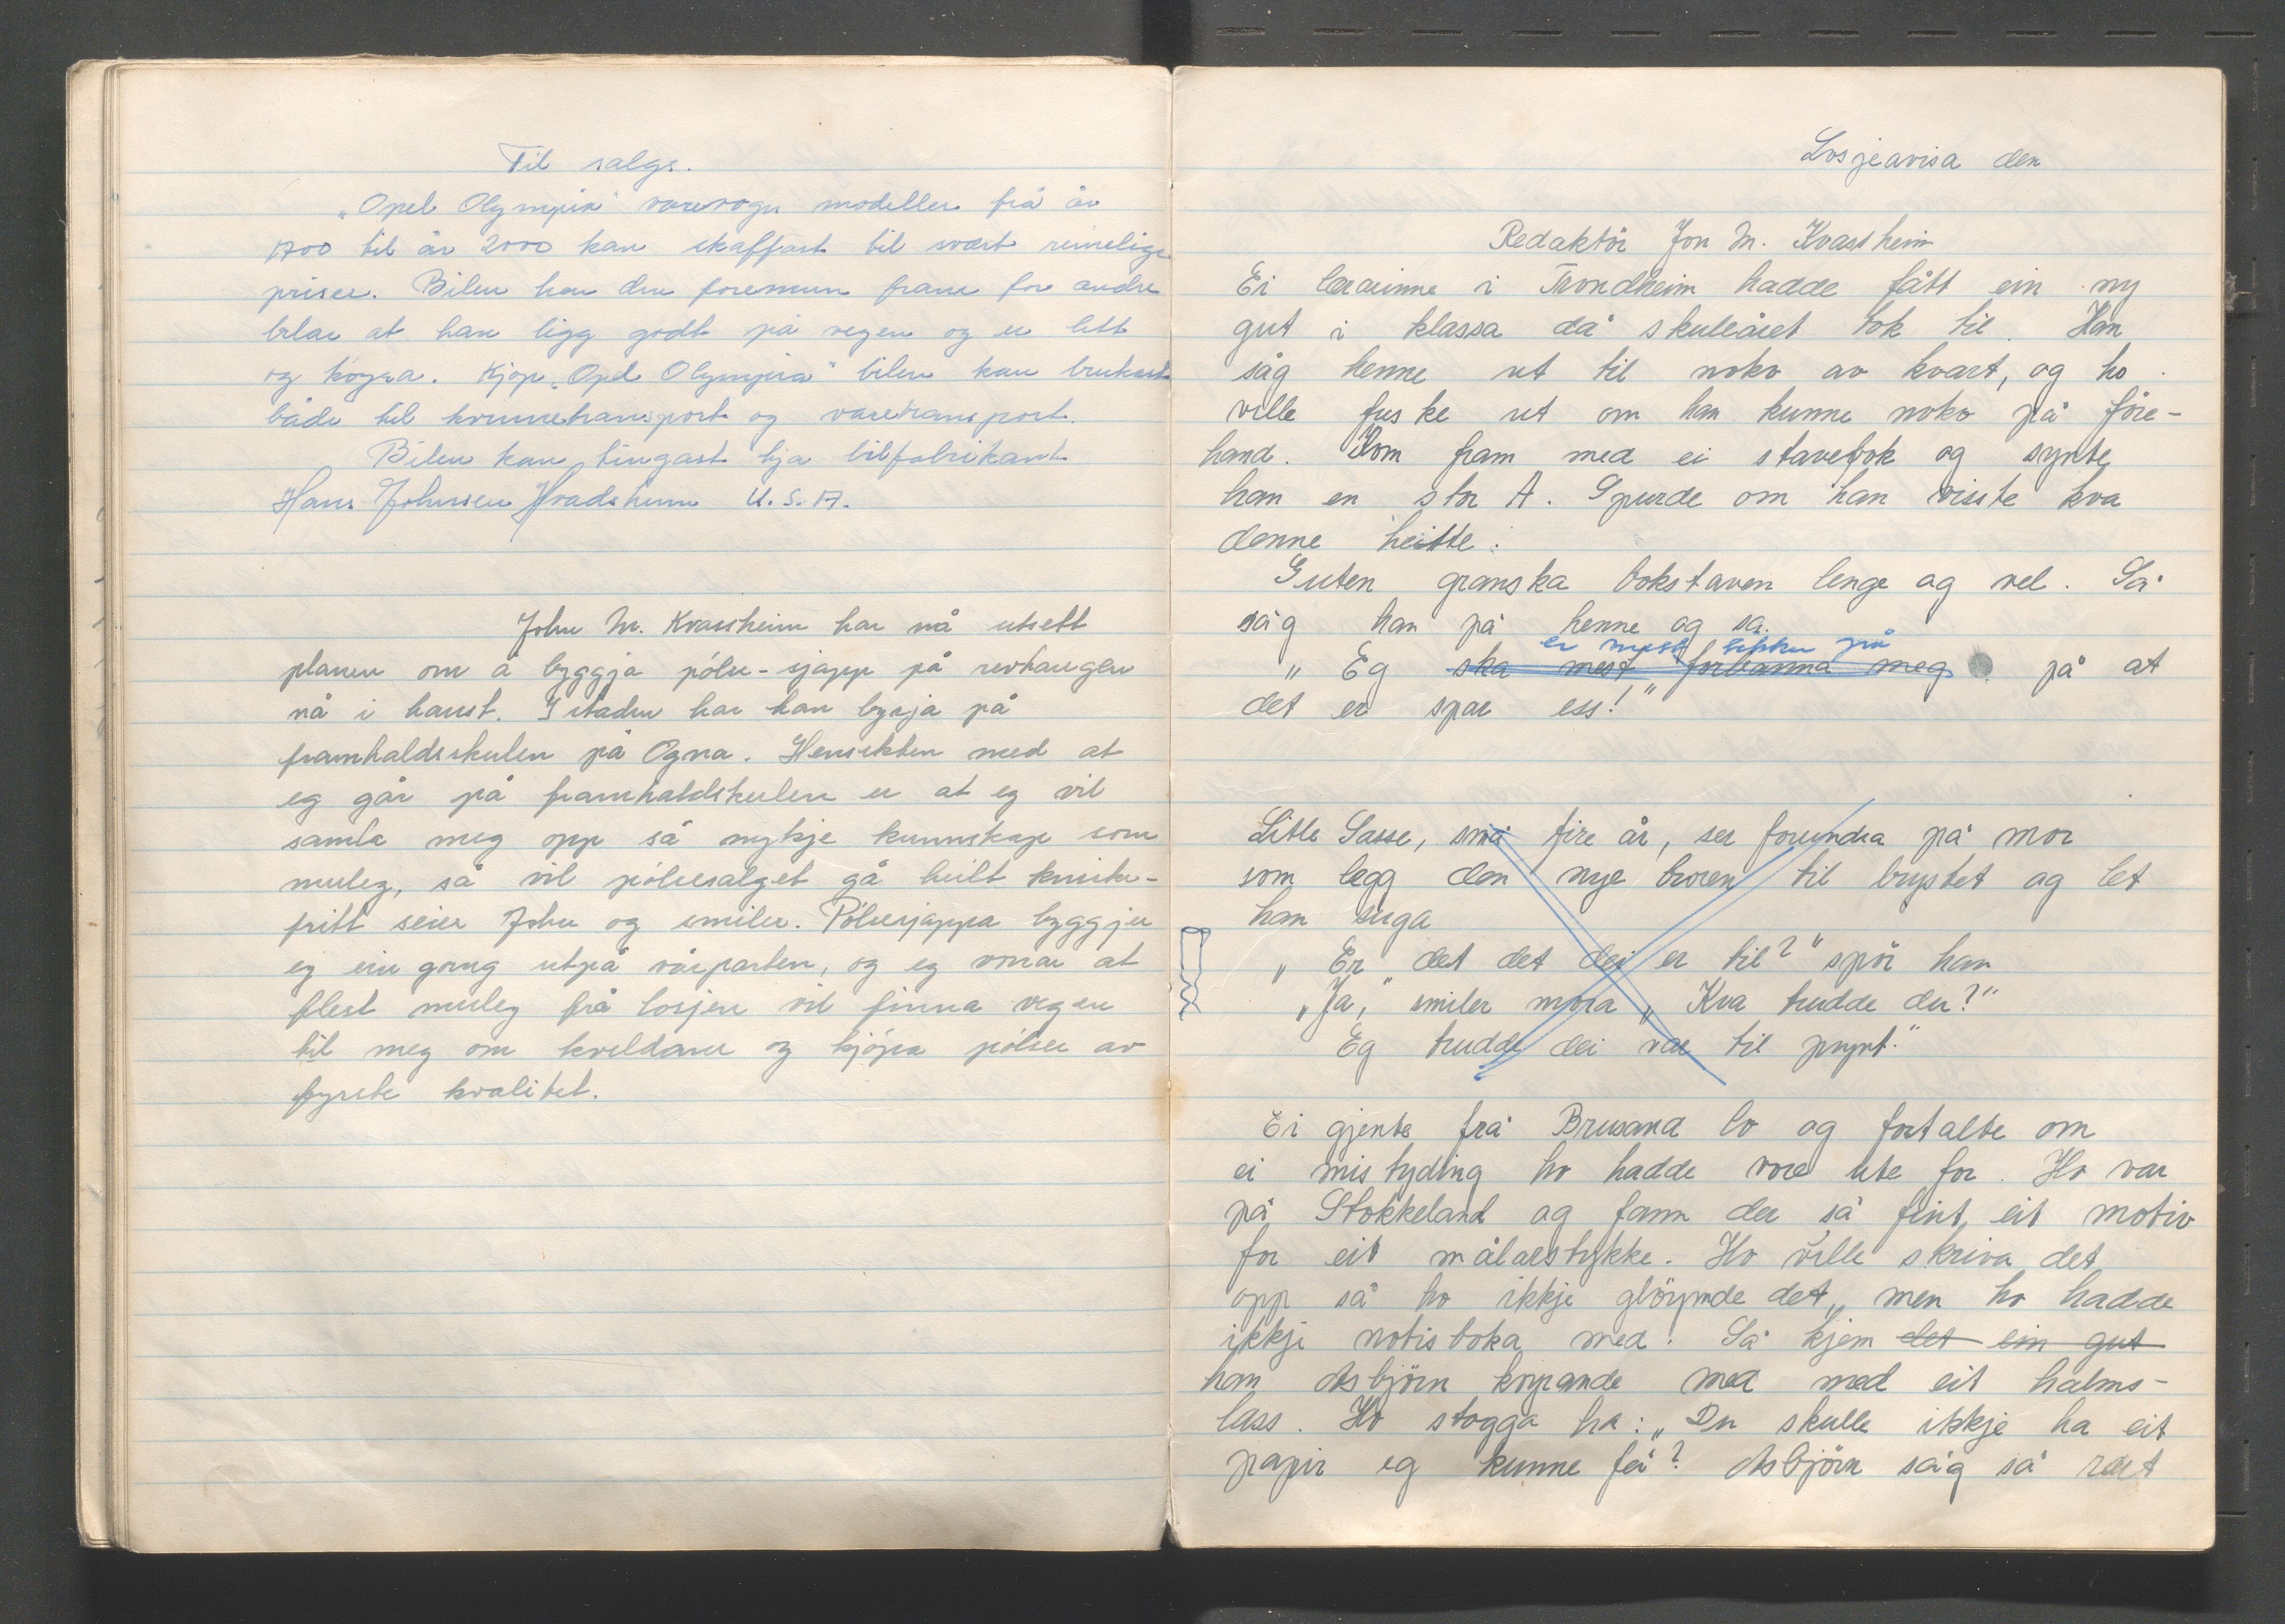 Til salgs.
"Opel Olympia" varevogn modeller frå år
1700 til år 2000 kan skaffast til svært rimelige
priser. Bilen har den foremun fram for andre
bilar at han ligg godt på vegen og er lett
og køyra. Kjøp "Opel Olympia" bilen kan brukast
både til kvinnetransport og varetransport.
Bilen kan tingast hja bilfabrikant
Hans Johnsen Hvadsheim U.S.A.
John M. Kvassheim har nå utsett
planen om å byggja pólse-sjapp på revhaugen
nå i haust. I staden har han byrja på
framhaldsskulen på Ogna. Hensikten med at
eg går på framhaldskulen er at eg vil
samla meg opp så mykje kunnskap som
muleg, så vil pólsesalget gå heilt knirke-
fritt seier John og smiler. Pólsesjappa byggjer
eg ein gong utpå vårparten, og eg vonar at
flest muleg frå losjen vil finna vegen
til meg om kveldane og kjöpa pólser av
fyrste kvalitet.
Losjeavisa den
Redaktör Jon M. Kvassheim
Ei lærarinne i Trondheim hadde fått ein ny
gut i klassa då skuleåret tok til. Han
såg henne ut til noko av kvart, og ho
ville fuske ut om han kunne noko på före-
hand. Kom fram med ei stavebok og synte
han en stor A. Spurde om han visste kva
denne heitte.
Guten granska bokstaven lenge og vel. Så
såg han på henne og sa.
er mest sikker på
"Eg ska mest forbanna meg på at
det er spar ess!"
Litle Lasse, små fire år, ser forundra på mor
som legg den nye broren til brystet og let
han suga
"Er det det dei er til?" spör han
"Ja," smiler mora "Kva trudde du?"
Eg trudde dei var til pynt."
Ei gjente frå Brusand lo og fortalte om
ei mistyding ho hadde vore ute for. Ho var
på Stokkeland og fann der så fint eit motiv
for eit målarstykke. Ho ville skriva det
opp så ho ikkje glöymde det, men ho hadde
ikkje notisboka med. Så kjem det ein gut
han Asbjörn köyrande med med eit halms-
lass. Ho stogga ha: "Du skulle ikkje ha eit
papir eg kunne få? Asbjörn såg så rart